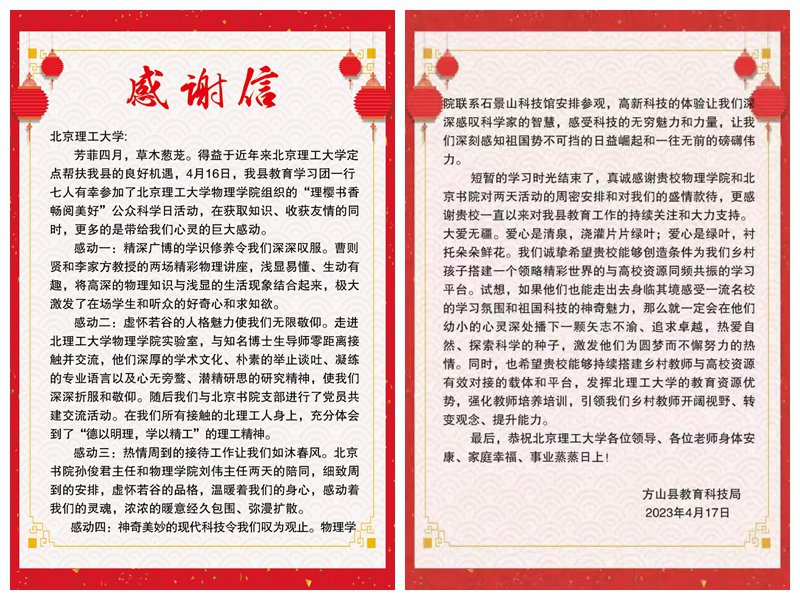 感谢信
北京理工大学:
芳菲四月，草木葱茏。得益于近年来北京理工大学定
点帮扶我县的良好机遇，4月16日，我县教育学习团一行
七人有幸参加了北京理工大学物理学院组织的“理樱书香
畅阅美好”公众科学日活动，在获取知识、收获友情的同
时，更多的是带给我们心灵的巨大感动。
感动一：精深广博的学识修养令我们深深叹服。曹则
贤和李家方教授的两场精彩物理讲座，浅显易懂、生动有
趣，将高深的物理知识与浅显的生活现象结合起来，极大
激发了在场学生和听众的好奇心和求知欲。
感动二：虚怀若谷的人格魅力使我们无限敬仰。走进
北理工大学物理学院实验室，与知名博士生导师零距离接
触并交流，他们深厚的学术文化、朴素的举止谈吐、凝练
的专业语言以及心无旁鹜、潜精研思的研究精神，使我们
深深折服和敬仰。随后我们与北京书院支部进行了党员共
建交流活动。在我们所有接触的北理工人身上，充分体会
到了“德以明理，学以精工”的理工精神。
感动三：热情周到的接待工作让我们如沐春风。北京
书院孙俊君主任和物理学院刘伟主任两天的陪同，细致周
到的安排，虚怀若谷的品格，温暖着我们的身心，感动着
我们的灵魂，浓浓的暖意经久包围、弥漫扩散。
感动四：神奇美妙的现代科技令我们叹为观止。物理学
院联系石景山科技馆安排参观，高新科技的体验让我们深
深感叹科学家的智慧，感受科技的无穷魅力和力量，让我
们深刻感知祖国势不可挡的日益崛起和一往无前的磅礴伟
力。
短暂的学习时光结束了，真诚感谢贵校物理学院和北
京书院对两天活动的周密安排和对我们的盛情款待，更感
谢贵校一直以来对我县教育工作的持续关注和大力支持。
大爱无疆。爱心是清泉，浇灌片片绿叶；爱心是绿叶，衬
托朵朵鲜花。我们诚挚希望贵校能够创造条件为我们乡村
孩子搭建一个领略精彩世界的与高校资源同频共振的学习
平台。试想，如果他们也能走出去身临其境感受一流名校
的学习氛围和祖国科技的神奇魅力，那么就一定会在他们
幼小的心灵深处播下一颗矢志不渝、追求卓越，热爱自
然、探索科学的种子，激发他们为圆梦而不懈努力的热
情。同时，也希望贵校能够持续搭建乡村教师与高校资源
有效对接的载体和平台，发挥北理工大学的教育资源优
势，强化教师培养培训，引领我们乡村教师开阔视野、转
变观念、提升能力。
最后，恭祝北京理工大学各位领导、各位老师身体安
康、家庭幸福、事业蒸蒸日上！
方山县教育科技局
2023年4月17日